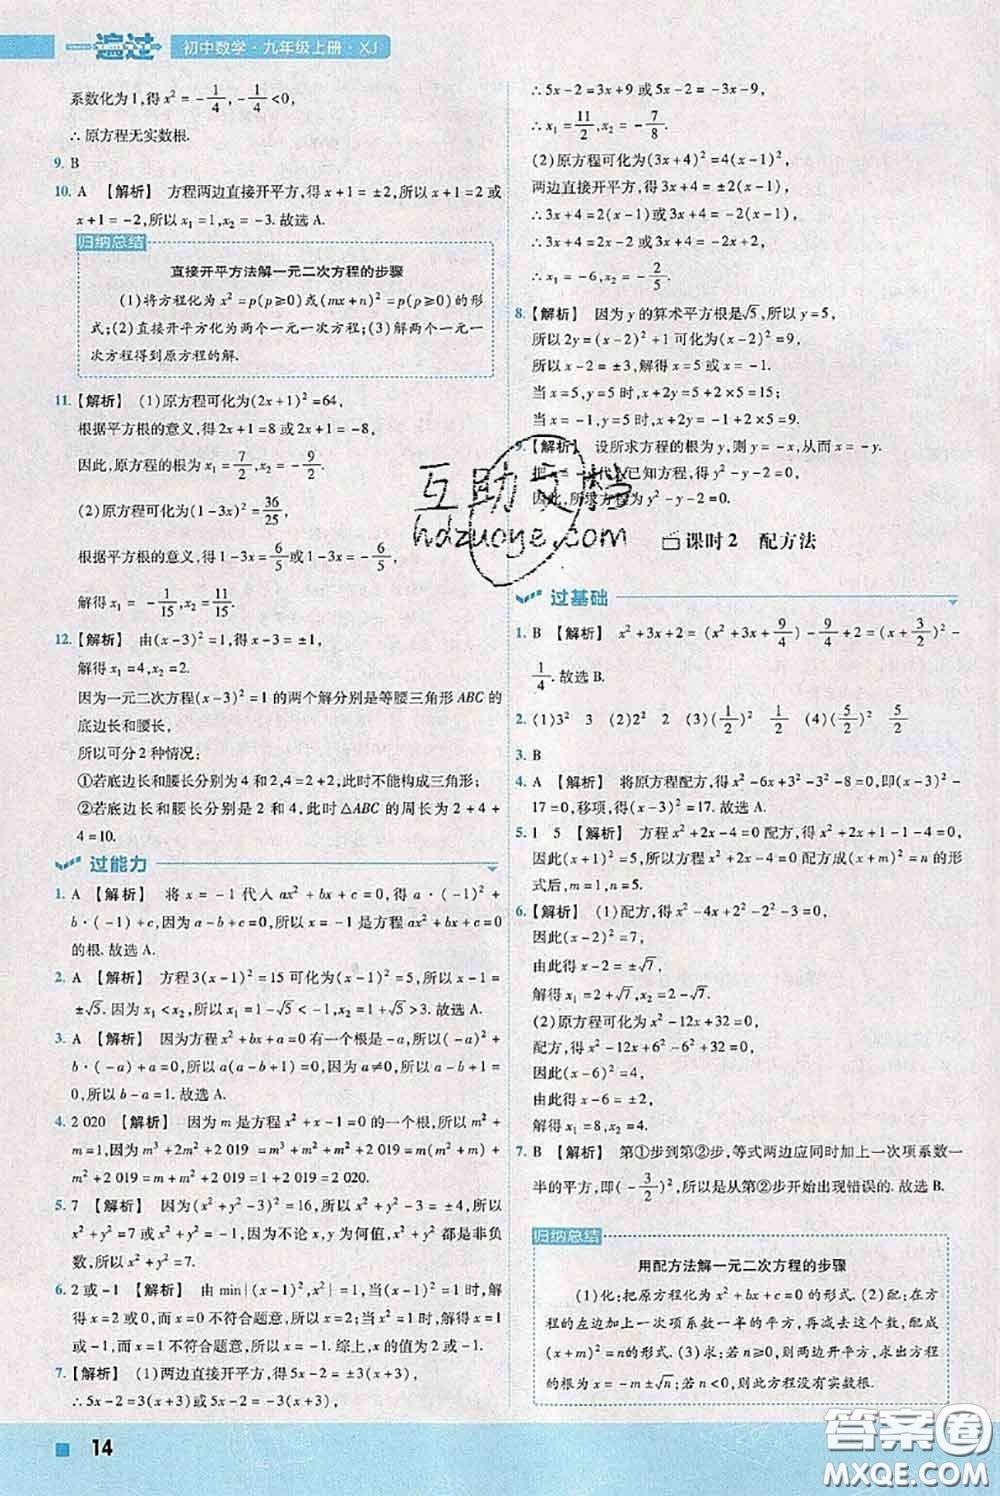 一遍过 初中数学·九年级上册·XJ
系数化为1,得x²=-1/4,-1/4<0,
∴原方程无实数根.
9. B
10. A 【解析】 方程两边直接开平方,得x+1=±2,所以x+1=2或
x+1=-2,所以x₁=1,x₂=-3.故选A.
归纳总结
直接开平方法解一元二次方程的步骤
(1)将方程化为x²=p(p≥0)或(mx+n)²=p(p≥0)的形
式;(2)直接开平方化为两个一元一次方程;(3)解两个一元一
次方程得到原方程的解.
11. 【解析】 (1)原方程可化为(2x+1)²=64,
根据平方根的意义,得2x+1=8或2x+1=-8,
因此,原方程的根为x₁=7/2,x₂=-9/2.
(2)原方程可化为(1-3x)²=36/25,
根据平方根的意义,得1-3x=6/5或1-3x=-6/5,
解得x₁=-1/15,x₂=11/15.
12. 【解析】 由(x-3)²=1,得x-3=±1,
解得x₁=4,x₂=2.
因为一元二次方程(x-3)²=1的两个解分别是等腰三角形ABC的
底边长和腰长,
所以可分2种情况:
①若底边长和腰长分别为4和2,4=2+2,此时不能构成三角形;
②若底边长和腰长分别是2和4,此时△ABC的周长为2+4+
4=10.
过能力
1. A 【解析】 将x=-1代入ax²+bx+c=0,得a·(-1)²+
b·(-1)+c=0,因为a-b+c=0,所以x=-1是方程ax²+bx+c=0
的根.故选A.
2. A 【解析】 方程3(x-1)²=15可化为(x-1)²=5,所以x-1=
±√5.因为x₁<x₂,所以x₁=1-√5<-1.故选A.
3. A 【解析】 因为方程x²+bx+a=0有一个根是-a,所以(-a)²+
b·(-a)+a=0,所以a(a-b+1)=0,因为a≠0,所以a-b+1=
0,所以a-b=-1.故选A.
4. 2 020 【解析】 因为m是方程x²+x-1=0的一个根,所以m²+
m=1,因为m³+2m²+2 019=m³+m²+m²+2 019=m(m²+m)+
m²+2 019=m+m²+2 019=1+2 019=2 020.
5. 7 【解析】 因为(x²+y²-3)²=16,所以x²+y²-3=±4,所以
x²+y²=7或x²+y²=-1,因为不论x,y为何值,x²+y²都是非负
数,所以x²+y²=7.
6. 2或-1 【解析】 由min{(x-1)²,x²}=1,当(x-1)²=1时,解
得x=2或x=0,而x=0不符合题意,所以x=2;当x²=1时,解得x=1
或x=-1,而x=1不符合题意,所以x=-1.综上,x的值为2或-1.
7. 【解析】 (1)两边直接开平方,得5x-2=±3(x+3),
∴5x-2=3(x+3)或5x-2=-3(x+3),
∴5x-2=3x+9或5x-2=-3x-9,
∴x₁=11/2,x₂=-7/8.
(2)原方程可化为(3x+4)²=4(x-1)²,
两边直接开平方,得3x+4=±2(x-1),
∴3x+4=2(x-1)或3x+4=-2(x-1),
∴3x+4=2x-2或3x+4=-2x+2,
∴x₁=-6,x₂=-2/5.
8. 【解析】 因为y的算术平方根是√5,所以y=5,
所以2y=(x-2)²+1可化为(x-2)²=9,
所以x-2=±3,解得x=5或x=-1.
当x=5,y=5时,x+2y=5+2×5=15;
当x=-1,y=5时,x+2y=-1+2×5=9.
9. 【解析】 设所求方程的根为y,则y=-x,从而x=-y.
把x=-y代入已知方程,得y²-y-2=0,
因此,所求方程为y²-y-2=0.
互助文档
hdzuoye.com
课时2 配方法
过基础
1. B 【解析】 x²+3x+2=(x²+3x+9/4)-9/4+2=(x+3/2)²-
1/4.故选B.
2. (1)3² 3 (2)2² 2 (3)(1/2)² 1/2 (4)(5/2)² 5/2
3. B
4. A 【解析】 将原方程配方,得x²-6x+3²-3²-8=0,即(x-3)²-
17=0,移项,得(x-3)²=17.故选A.
5. 1 5 【解析】 方程x²+2x-4=0配方,得x²+2x+1²-1²-4=0,
因此(x+1)²=5,所以方程x²+2x-4=0配方成(x+m)²=n的形
式后,m=1,n=5.
6. 【解析】 (1)配方,得x²-4x+2²-2²-3=0,
因此(x-2)²=7,
由此得x-2=±√7,
解得x₁=2+√7,x₂=2-√7.
(2)原方程可化为x²-12x+32=0,
配方,得x²-12x+6²-6²+32=0,
因此(x-6)²=4,
由此得x-6=±2,
解得x₁=8,x₂=4.
7. B 【解析】 第①步到第②步,等式两边应同时加上一次项系数一
半的平方,即(-3/2)²,所以是从第②步开始出现错误的.故选B.
归纳总结
用配方法解一元二次方程的步骤
(1)化:把原方程化为x²+bx+c=0的形式.(2)配:在方
程的左边加上一次项系数一半的平方,再减去这个数,配成
(x+m)²=n的形式.(3)求:若n≥0,则两边开平方,求出方程
的根为x=-m±√n;若n<0,则原方程没有实数根.
14
答案圈
MXQE.COM